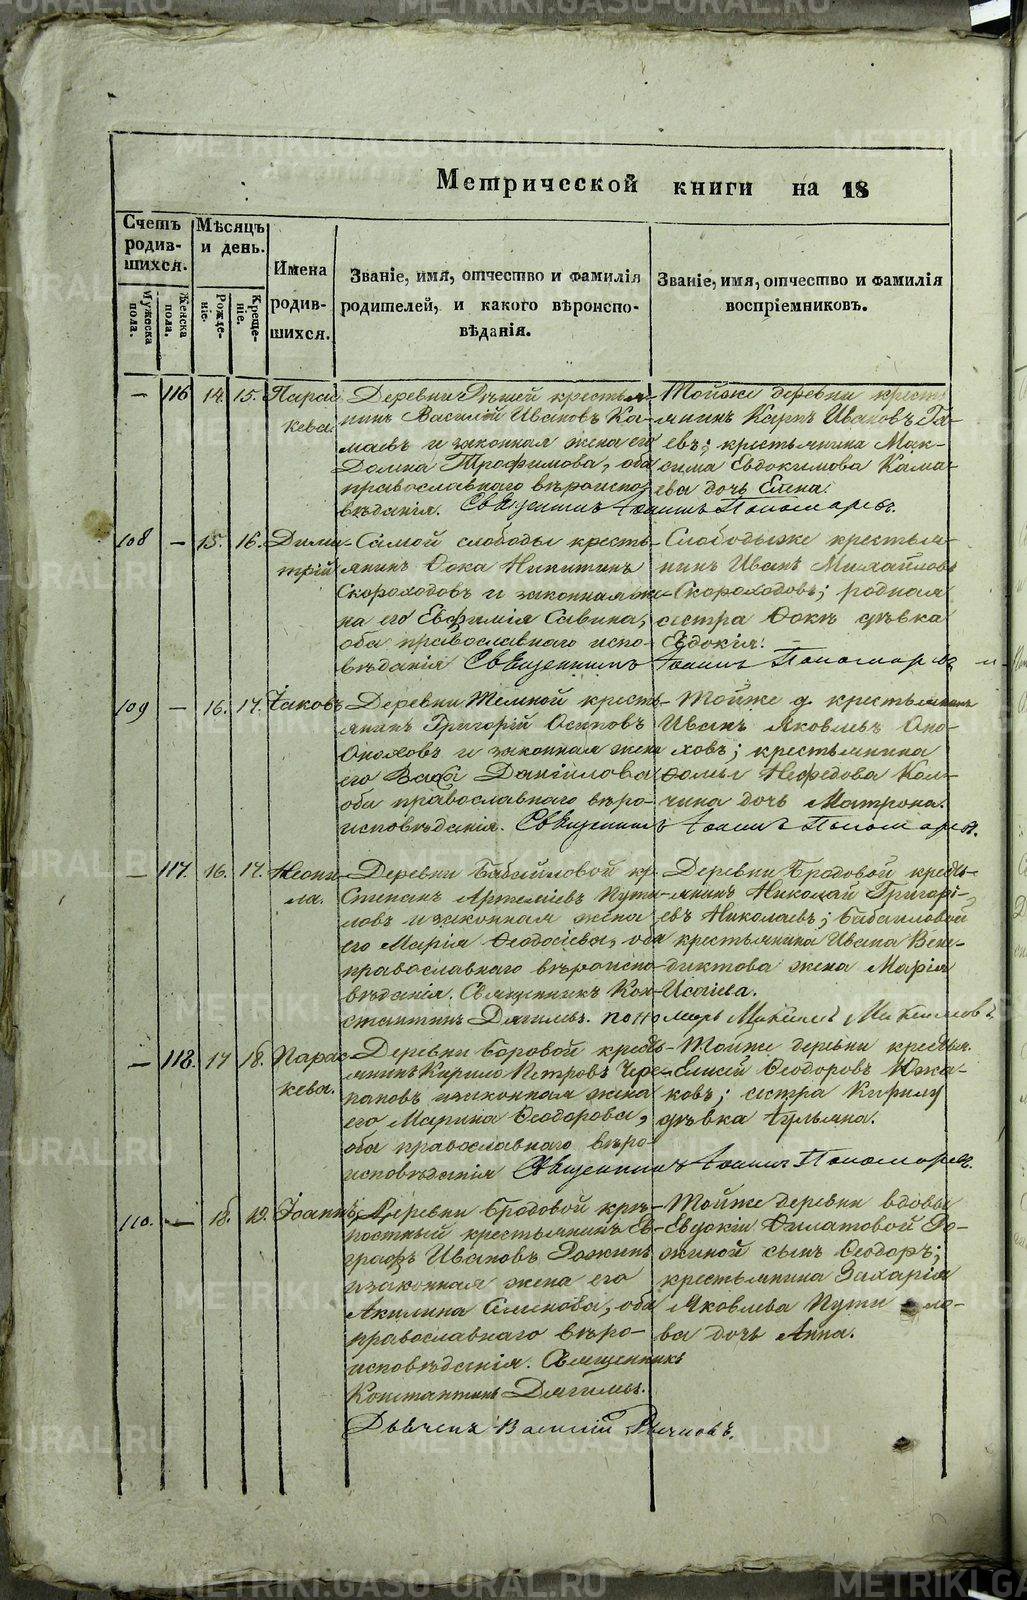 Метрической книги на 18
Счетъ родив-шихся.
Мѣсяцъ и день.
Имена родив-шихся.
Званіе, имя, отчество и фамилія родителей, и какого вѣроиспо-вѣданія.
Званіе, имя, отчество и фамилія воспріемниковъ.
Мужеска пола.
Женска пола.
Рожде-ніе.
Креще-ніе.
— 116 14. 15. Парас-
кева.
Деревни крестья-
нинъ Василій Ивановъ Ка-
маевъ и законная жена его
Домна Трофимова, оба
православнаго вѣроиспо-
вѣданія. Священникъ Іоаннъ Пономаревъ.
Тойже деревни кресть-
янинъ Карпъ Ивановъ
евъ; крестьянина Мак-
сима Евдокимова Кама-
ева дочь Елена.
108 — 15. 16. Дими-
трій
Самой слободы кресть-
янинъ Фока Никитинъ
Скороходовъ и законная же-
на его Евфимія Савина,
оба православнаго испо-
вѣданія Священникъ Іоаннъ Пономаревъ
Слободыже крестья-
нинъ Иванъ Михайловъ
Скороходовъ; родная
сестра Фокѣ дѣвка
Евдокія.
109 — 16. 17. Іаковъ
Деревни Темной кресть-
янинъ Григорій Осиповъ
Ополховъ и законная жена
его Данілова
оба православнаго вѣро-
исповѣданія. Священникъ Іоаннъ Пономаревъ.
Тойже д. крестьянинъ
Иванъ Яковлевъ Опо-
ховъ; крестьянина
Фомы Нефедова Кол-
чина дочь Матрона.
— 117. 16. 17. Неони-
ла.
Деревни Бабаиловой кр.
Степанъ Артемьевъ Пути-
ловъ и законная жена
его Марія Ѳеодосіева, оба
православнаго вѣроиспо-
вѣданія. Священникъ Кон-
стантинъ Дягилевъ. Пономарь
Деревни Бродовой кресть-
янинъ Николай Григорі-
евъ Николаевъ; Бабаиловой
крестьянина Ивана Вене-
диктова жена Марія
Исаіева.
— 118. 17 18. Парас-
кева.
Деревни Боровой кресть-
янинъ Кирило Петровъ Чере-
пановъ и законная жена
его Марина Ѳеодорова,
оба православнаго вѣро-
исповѣданія Священникъ Іоаннъ Пономаревъ.
Тойже деревни крестьян.
Елисій Ѳеодоровъ Южа-
ковъ; сестра Кирилу
дѣвка Іульяна.
110. — 18. 19. Іоаннъ
Деревни Бродовой крѣ-
постный крестьянинъ Ев-
графъ Ивановъ Рожинъ
и законная жена его
Акилина Семенова, оба
православнаго вѣро-
исповѣданія. Священникъ
Константинъ Дягилевъ.
Дьячекъ Василій
Тойже деревни вдовы
Евдокіи Филатовой Ро-
жиной сынъ Ѳеодоръ;
крестьянина Захарія
Яковлева Путило-
ва дочь Анна.
METRIKI.GASO-URAL.RU